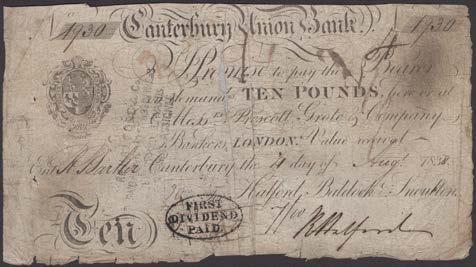 1930 Canterbury Union Bank. 1930
I Promise to pay the Bearer
on demand TEN POUNDS, here or at
Mess.rs Prescott, Grote & Company
Bankers, LONDON. Value received
Ent.d Canterbury the 4 day of Aug.t 1838
Halford, Baldock & Snoulten
Ten
FIRST
DIVIDEND
PAID